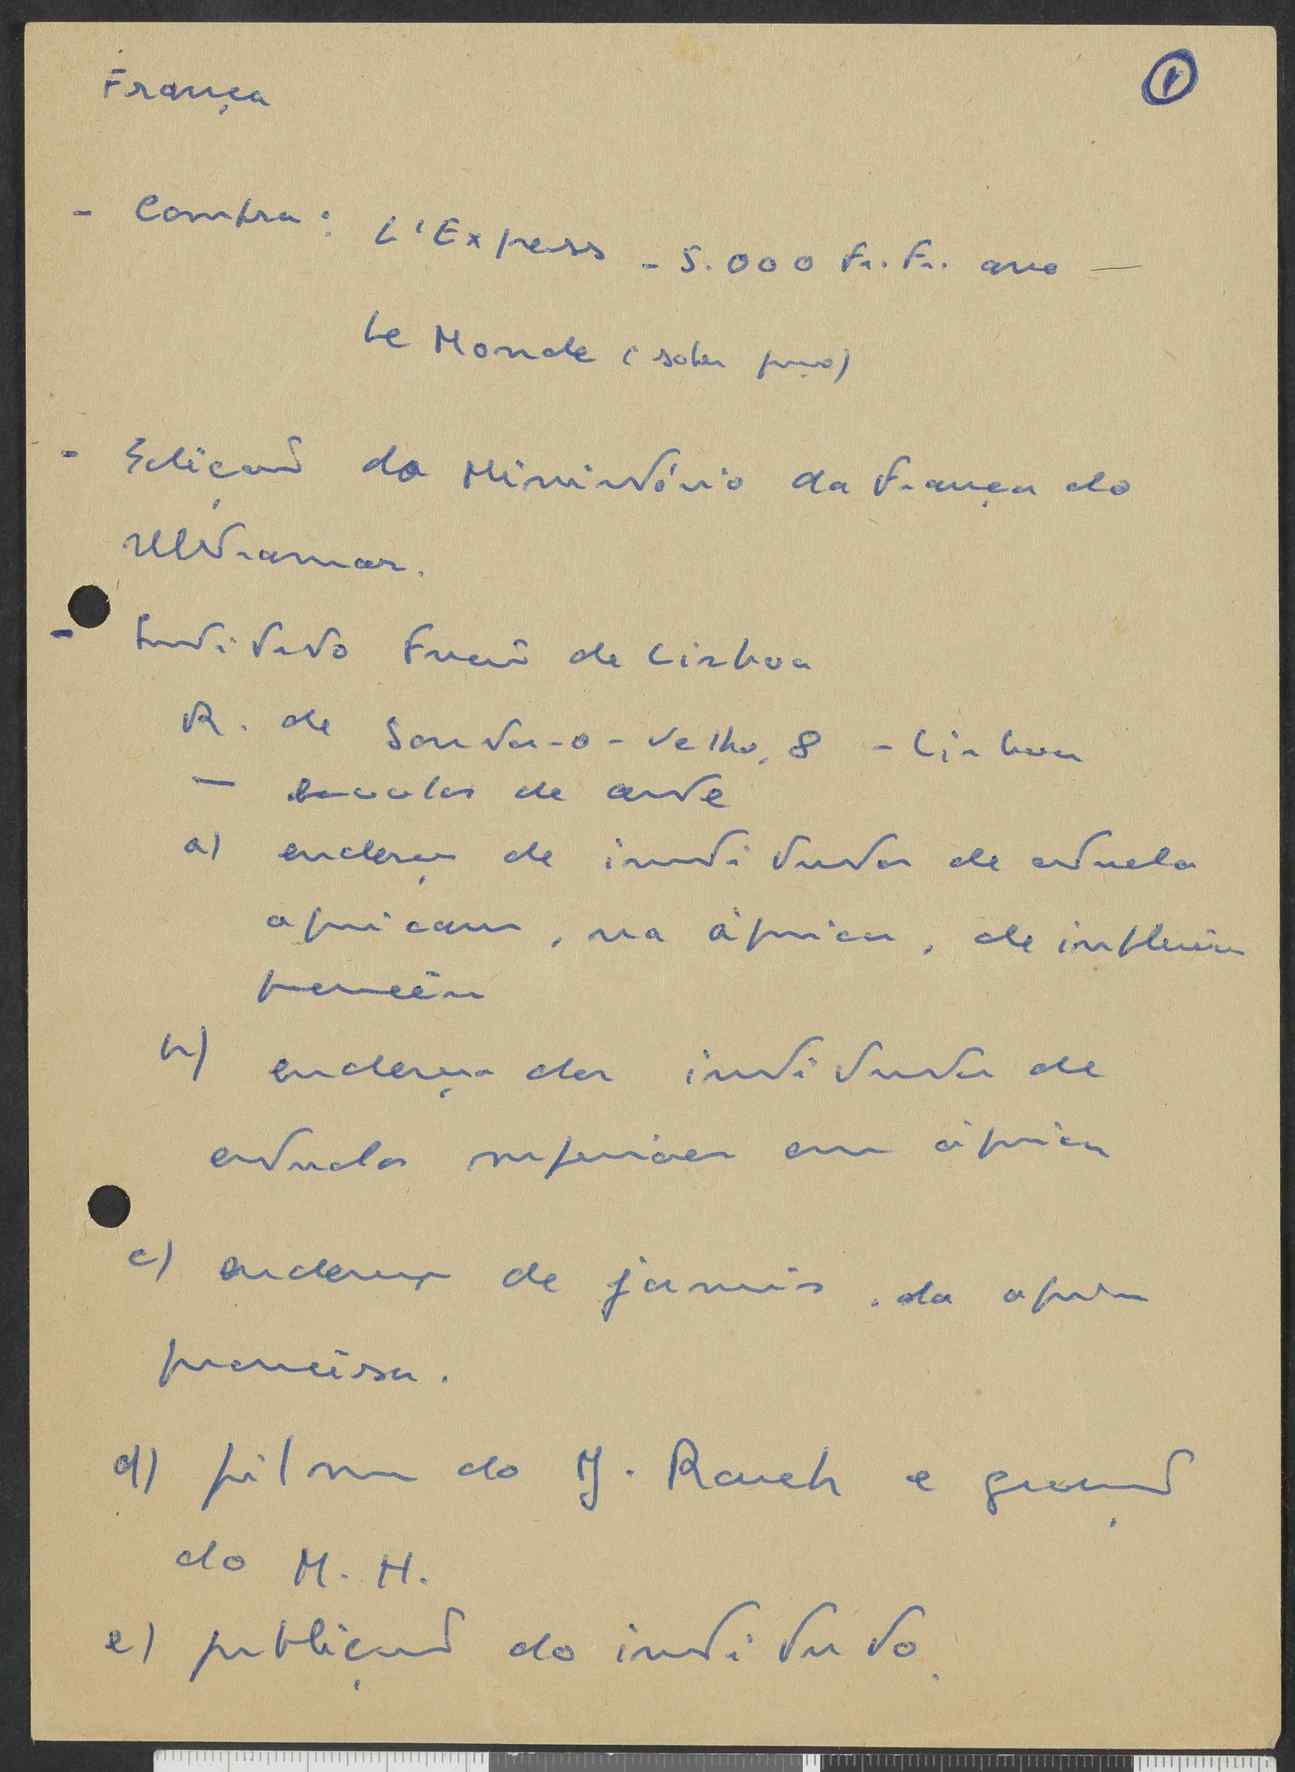 França
①
- Compra: L'Express - 5.000 Fr. Fr. ano -
Le Monde (saber preço)
- Edição do Ministério da França do
Ultramar.
- Instituto Francês de Lisboa
R. de Santos-o-Velho, 8 - Lisboa
- escolas de arte
a) endereço de institutos de estudos
africanos, na áfrica, de influência
francesa
b) endereço dos institutos de
estudos superiores em áfrica
c) endereço de jornais da africa
francesa.
d) filmes do J. Rouch e gravação
do M. H.
e) publicação do instituto.